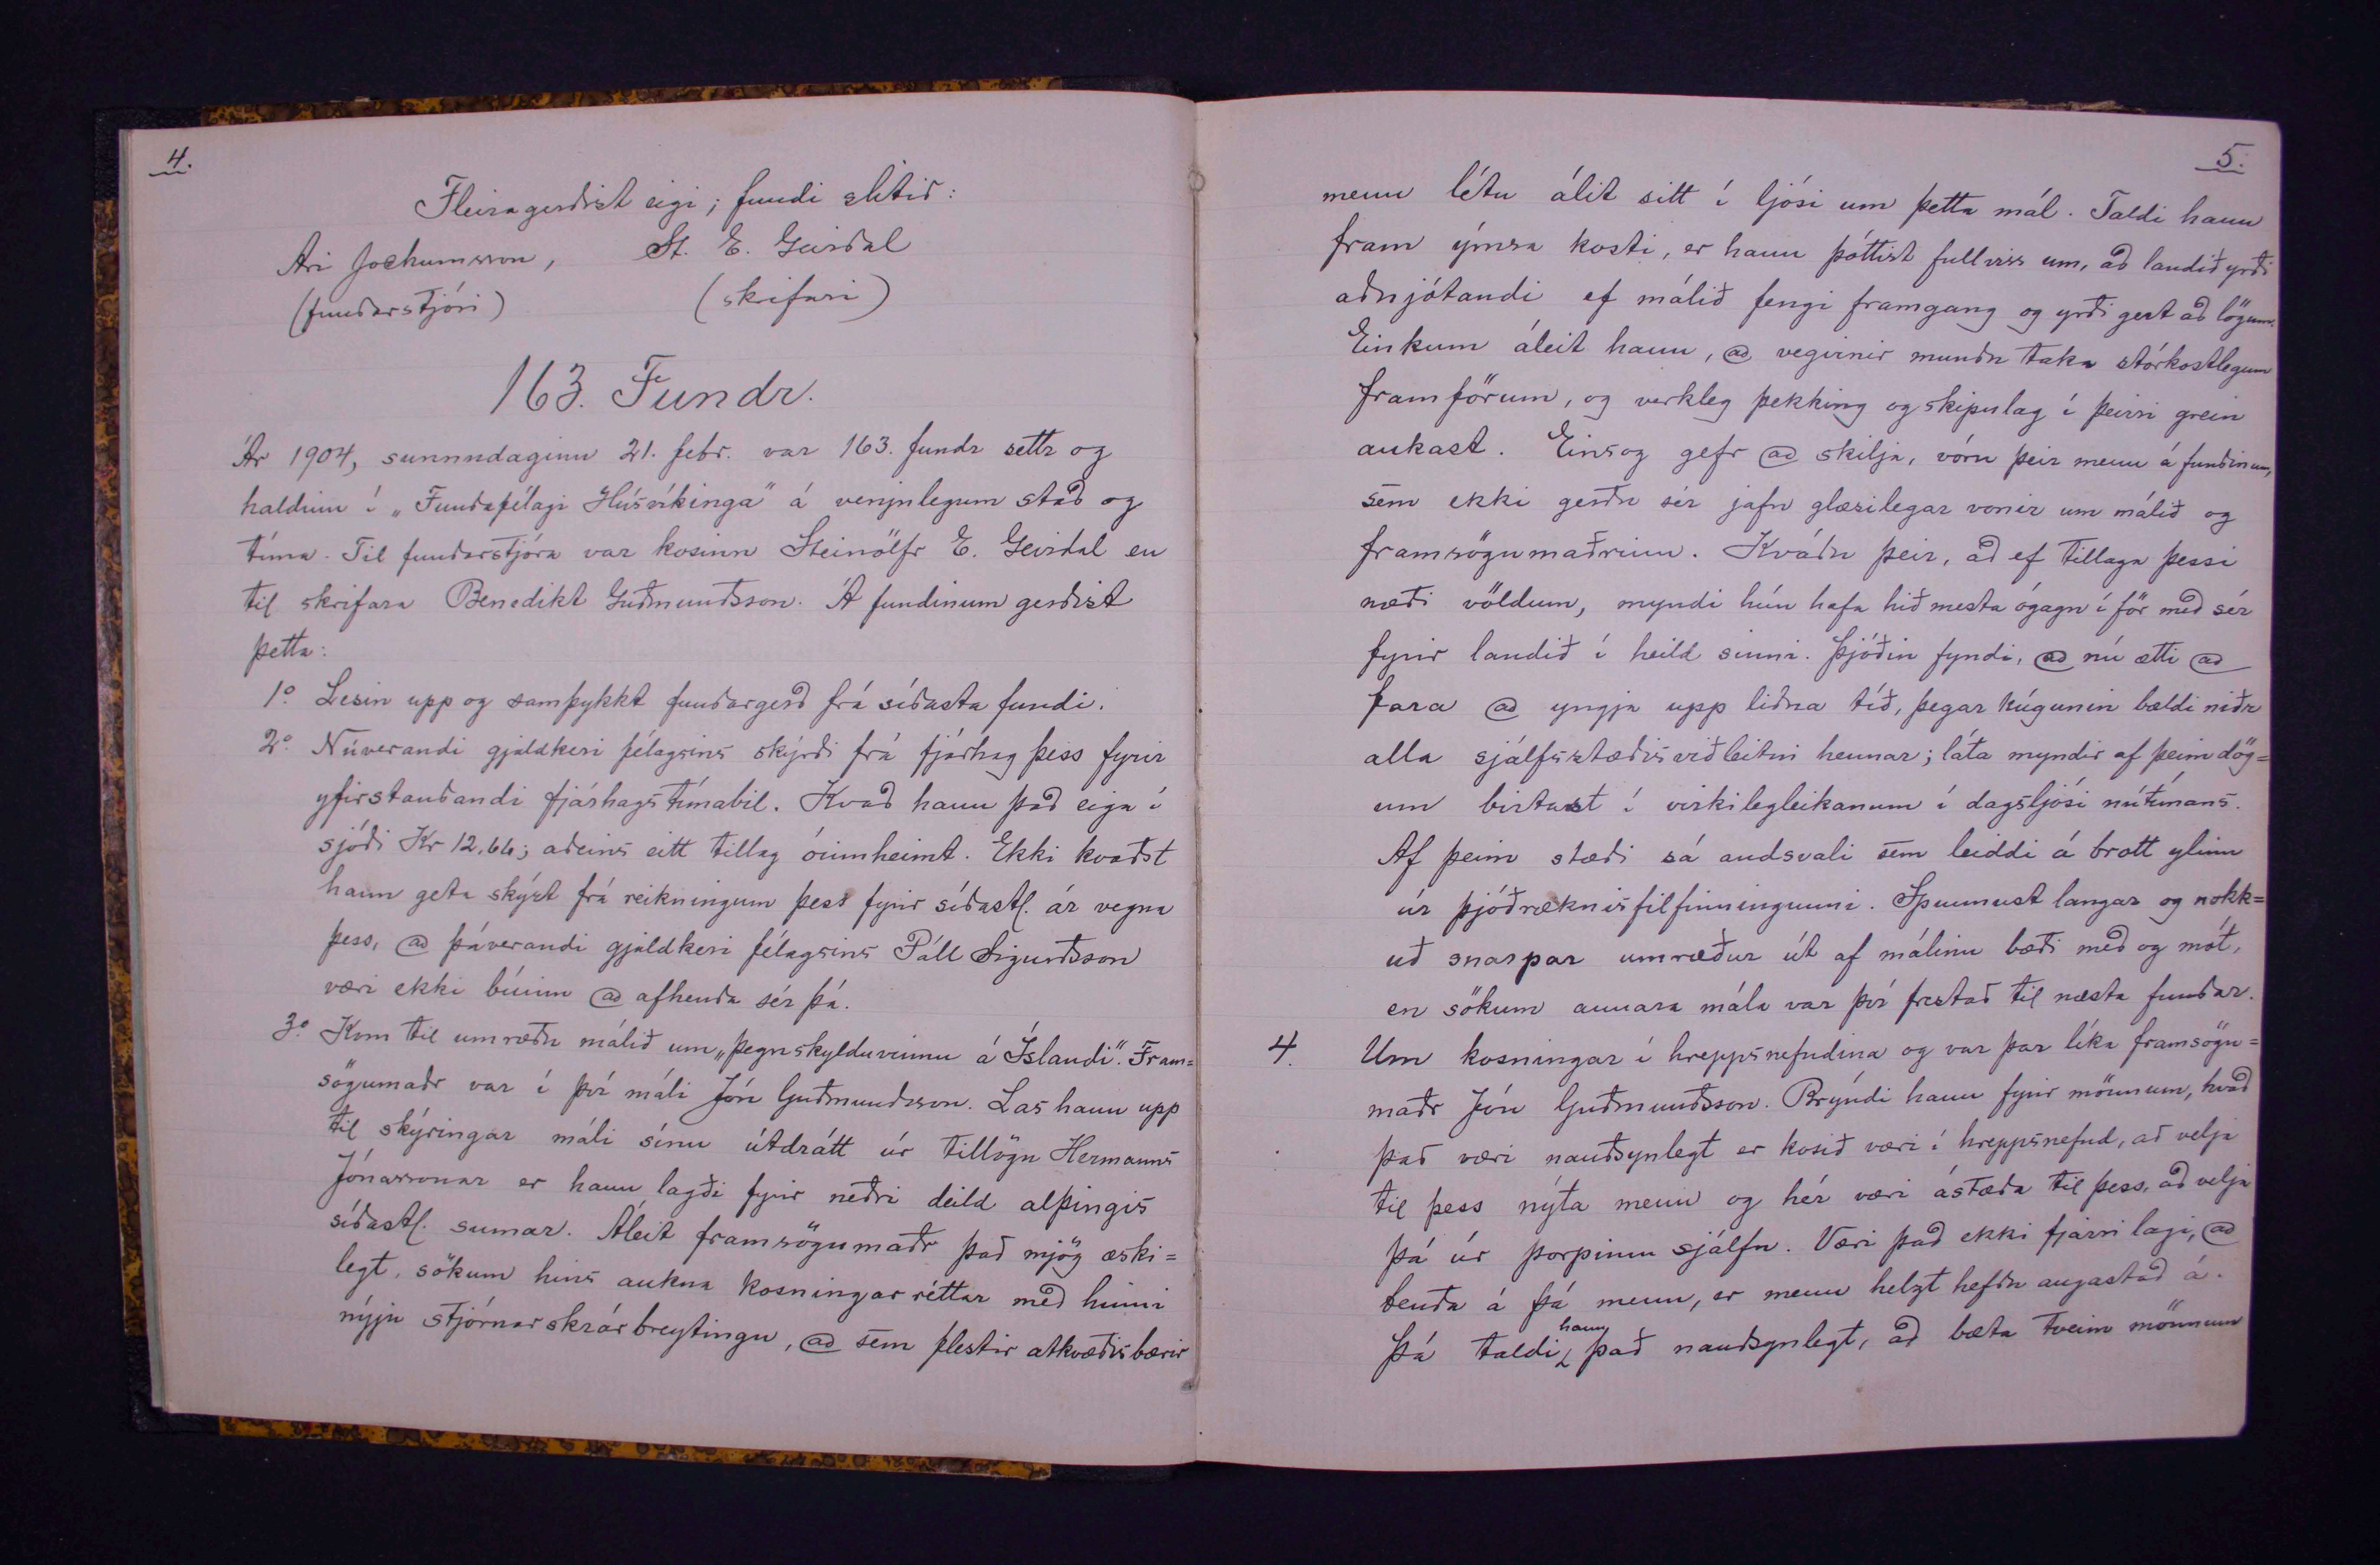 4.
Fleira gerðist eigi; fundi slitið:
Ari Jochumsson, St. E. Geirdal
(fundarstjóri) (skrifari)
163. Fundr.
Ár 1904, sunnudaginn 21. febr. var 163. fundr settr og
haldinn í „Fundafélagi Húsvíkinga" á venjulegum stað og
tíma. Til fundarstjóra var kosinn Steinólfr E. Geirdal en
til skrifara Benedikt Guðmundsson. Á fundinum gerðist
þetta:
1.o Lesin upp og samþykkt fundargerð frá síðasta fundi.
2.o Núverandi gjaldkeri félagsins skýrði frá fjárhag þess fyrir
yfirstandandi fjárhagstímabil. Kvað hann það eiga í
sjóði Kr 12.66; aðeins eitt tillag óinnheimt. Ekki kvaðst
hann geta skýrt frá reikningum þess fyrir síðastl. ár vegna
þess, að þáverandi gjaldkeri félagsins Páll Sigurðsson
væri ekki búinn að afhenda sér þá.
3.o Kom til umræðu málið um „þegnskylduvinnu á Íslandi". Fram=
sögumaðr var í því máli Jón Guðmundsson. Las hann upp
til skýringar máli sínu útdrátt úr tillögu Hermanns
Jónassonar er hann lagði fyrir neðri deild alþingis
síðastl. sumar. Áleit framsögumaðr það mjög æski=
legt, sökum hins aukna kosningarréttar með hinni
nýju stjórnarskrárbreytingu, að sem flestir atkvæðisbærir
5.
menn létu álit sitt í ljósi um þetta mál. Taldi hann
fram ýmsa kosti, er hann þóttist fullviss um, að landið yrði
aðnjótandi ef málið fengi framgang og yrði gert að lögum.
Einkum áleit hann, að vegirnir mundu taka stórkostlegum
framförum, og verkleg þekking og skipulag í þeirri grein
aukast. Einsog gefr að skilja, vóru þeir menn á fundinum,
sem ekki gerðu sér jafn glæsilegar vonir um málið og
framsögumaðrinn. Kváðu þeir, að ef tillaga þessi
næði völdum, myndi hún hafa hið mesta ógagn í för með sér
fyrir landið í heild sinni. Þjóðin fyndi, að nú ætti að
fara að yngja upp liðna tíð, þegar kúgunin bældi niðr
alla sjálfstæðisviðleitni hennar; láta myndir af þeim dög=
um birtast í virkilegleikanum í dagsljósi nútímans.
Af þeim stæði sá andsvali sem leiddi á brott ylinn
úr þjóðræknisfilfinningunni. Spunnust langar og nokk=
uð snarpar umræður út af málinu bæði með og mót,
en sökum annara mála var því frestað til næsta fundar.
4. Um kosningar í hreppsnefndina og var þar líka framsögu=
maðr Jón Guðmundsson. Brýndi hann fyrir mönnum, hvað
það væri nauðsynlegt er kosið væri í hreppsnefnd, að velja
til þess nýta menn og hér væri ástæða til þess, að velja
þá úr þorpinu sjálfu. Væri það ekki fjærri lagi, að
benda á þá menn, er menn helzt hefðu augastað á.
Þá taldi hann það nauðsynlegt, að bæta tveim mönnum